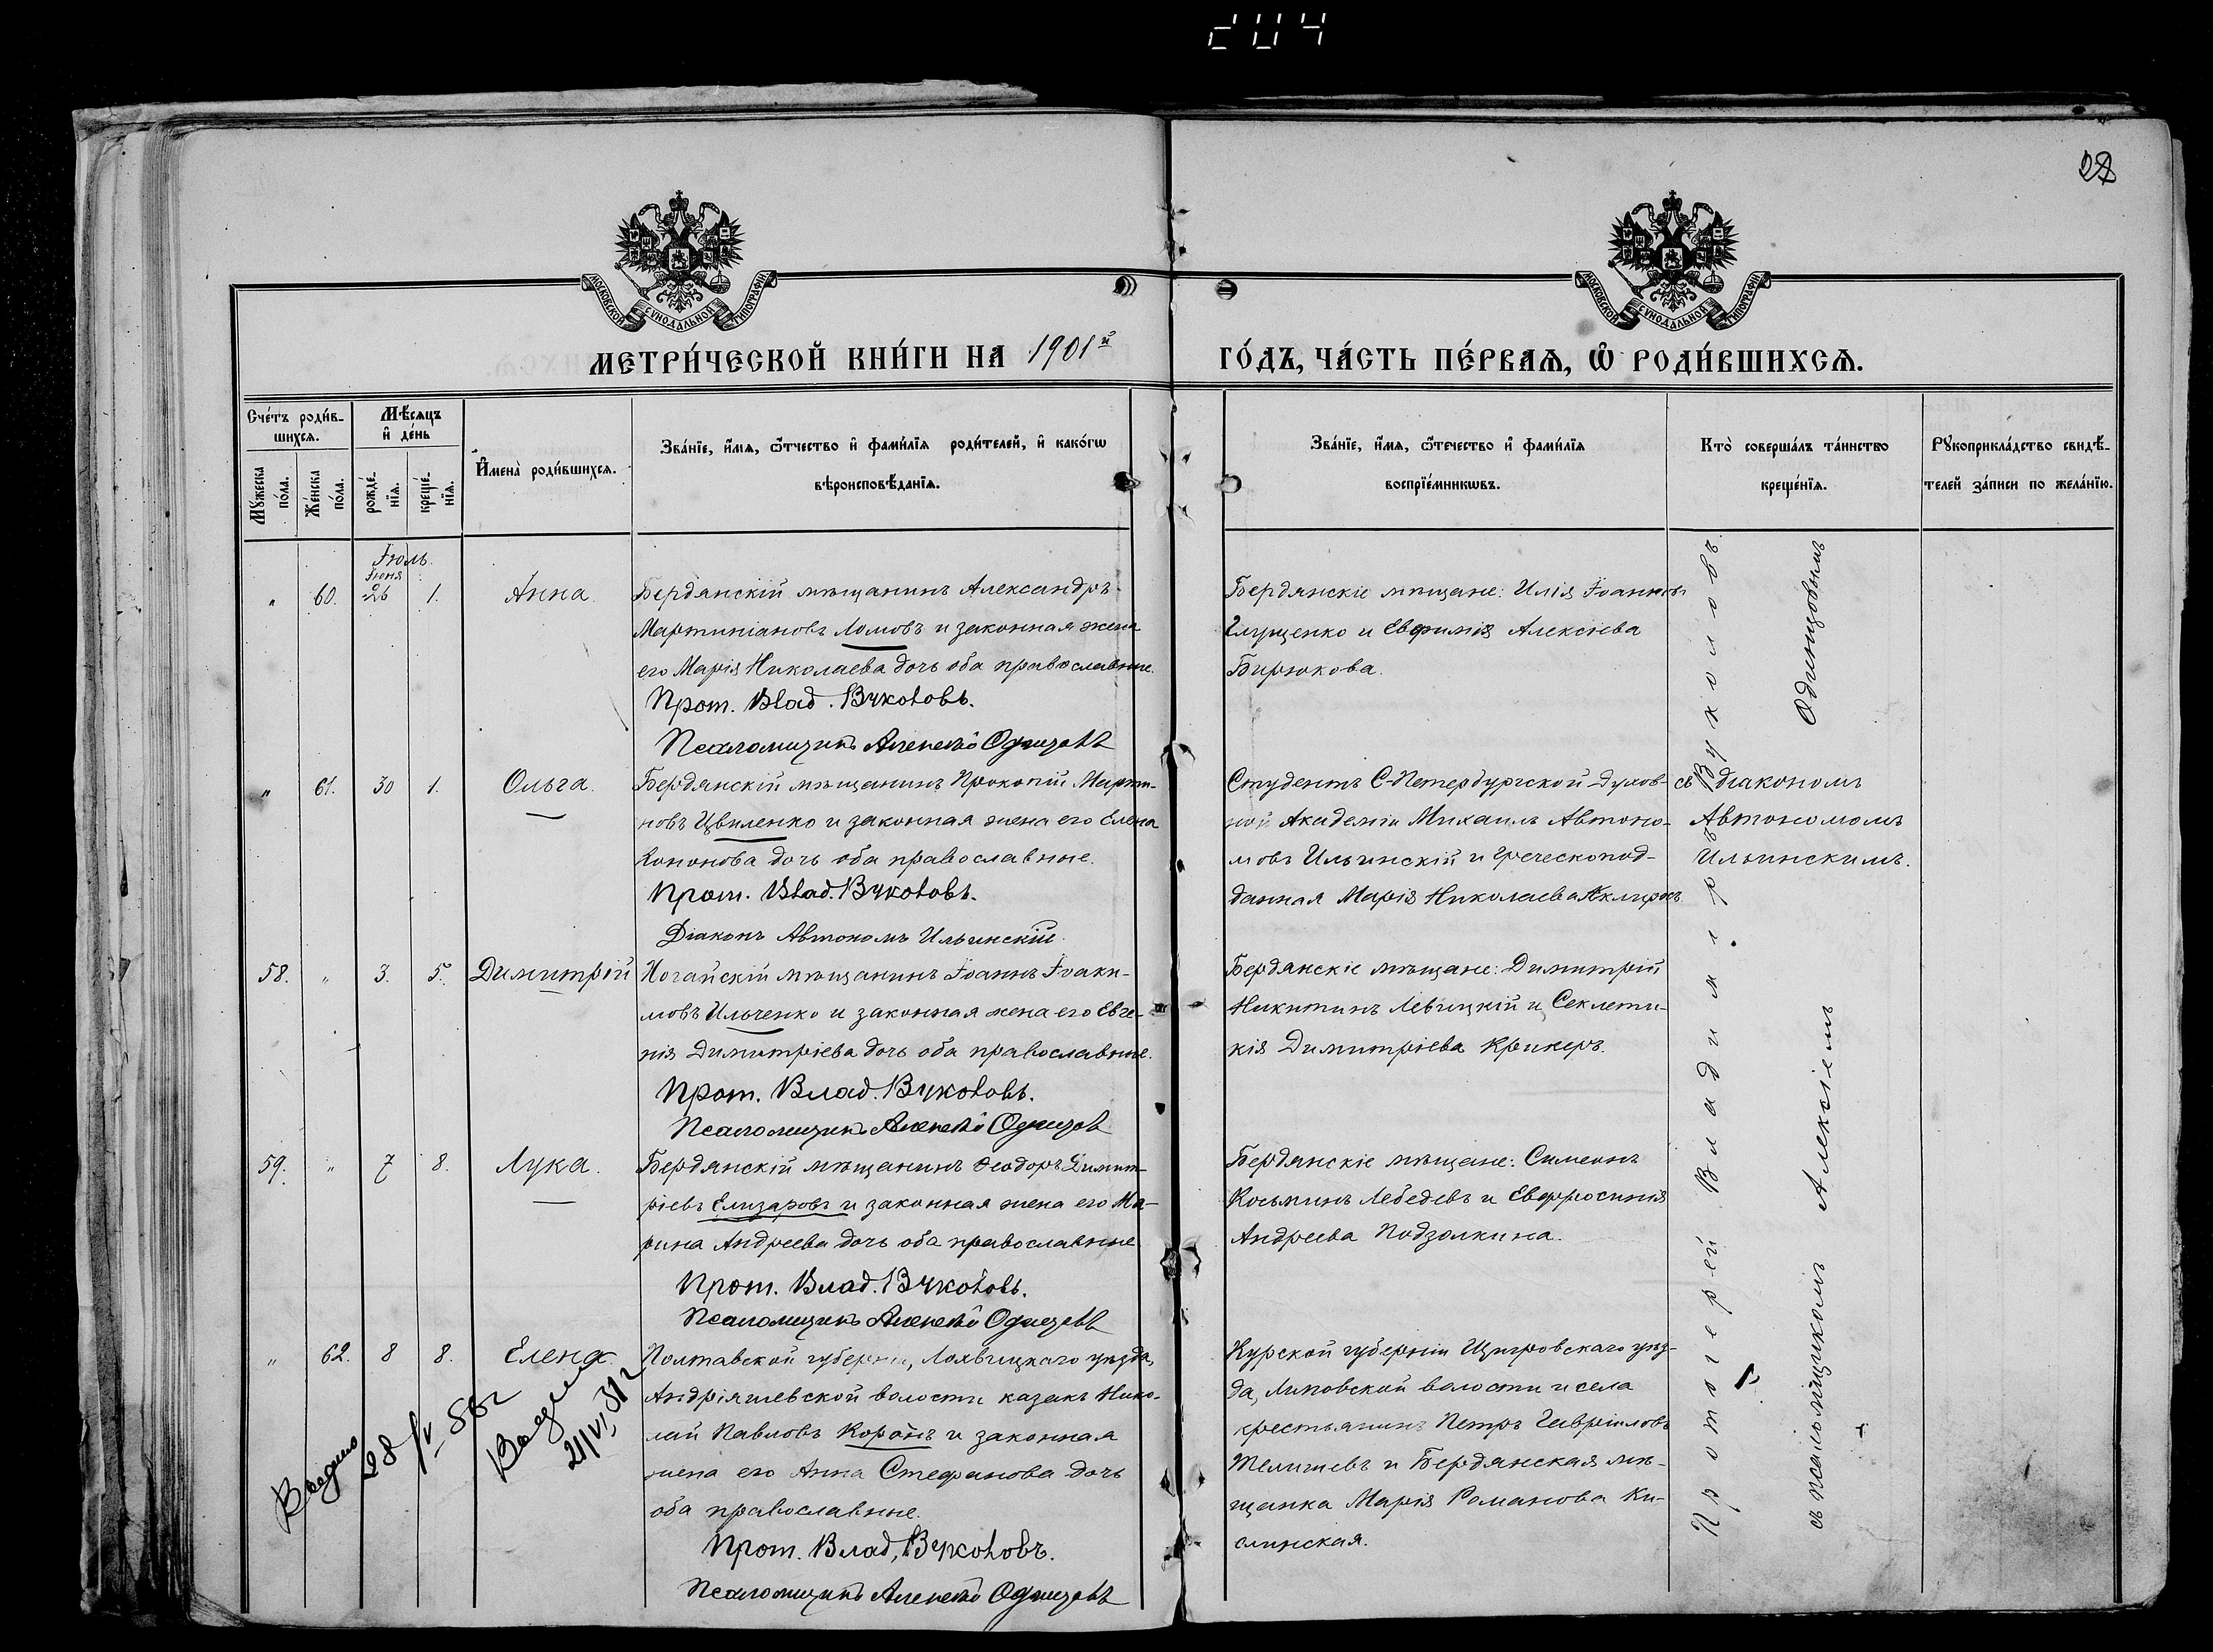 204
22
МОСКОВСКОЙ СУНОДАЛЬНОЙ ТИПОГРАФІИ
МОСКОВСКОЙ СУНОДАЛЬНОЙ ТИПОГРАФІИ
МЕТРИ́ЧЕСКОЙ КНИ́ГИ НА 1901й
ГО́ДЪ, ЧА́СТЬ ПЕ́РВАѦ, Ѽ РОДИ́ВШИХСѦ.
Сче́тъ роди́в-
шихсѧ.
Мꙋ́жеска
по́ла.
Же́нска
по́ла.
Мѣ́сѧцъ
и҆ де́нь
рожде́-
нїѧ.
креще́-
нїѧ.
И҆мена̀ роди́вшихсѧ.
Зва́нїе, и҆́мѧ, ѻ҆́тчество и҆ фами́лїѧ роди́телей, и҆ како́гѡ
вѣроисповѣ́данїѧ.
Зва́нїе, и҆́мѧ, ѻ҆́течество и҆ фами́лїѧ
воспрїе́мникѡвъ.
Кто̀ соверша́лъ та́инство
креще́нїѧ.
Рꙋкоприкла́дство свидѣ́-
телей за́писи по жела́нїю.
Іюль
Іюня
" 60. 26 1. Анна
Бердянскій мѣщанинъ Александръ
Мартиніановъ Ломовъ и законная жена
его Марія Николаева дочь оба православные.
Прот. Влад. Вуколовъ.
Псаломщикъ Алексѣй Одинцовъ
Бердянскіе мѣщане: Илія Іоанновъ
Глущенко и Евфимія Алексіева
Бирюкова.
" 61. 30 1. Ольга.
Бердянскій мѣщанинъ Прокопій Марти-
новъ Цвиленко и законная жена его Елена
Кононова дочь оба православные.
Прот. Влад. Вуколовъ.
Діаконъ Автономъ Ильинскій.
Студентъ С-Петербургской Духов-
ной Академіи Михаилъ Автоно-
мовъ Ильинскій и греческопод-
данная Марія Николаева
58. " 3. 5. Димитрій
Ногайскій мѣщанинъ Іоаннъ Іоаки-
мовъ Ильченко и законная жена его Евге-
нія Димитріева дочь оба православные.
Прот. Влад. Вуколовъ.
Псаломщикъ Алексѣй Одинцовъ
Бердянскіе мѣщане: Димитрій
Никитинъ Левицкій и Секлети-
кія Димитріева Крикеръ.
59. " 7 8. Лука.
Бердянскій мѣщанинъ Ѳеодоръ Димит-
ріевъ Елизаровъ и законная жена его Ма-
рина Андреева дочь оба православные
Прот. Влад. Вуколовъ.
Псаломщикъ Алексѣй Одинцовъ
Бердянскіе мѣщане: Симеонъ
Косьминъ Лебедевъ и Евфросинія
Андреева Подзолкина.
" 62. 8 8. Елена.
Полтавской губерніи, Лохвицкаго уѣзда,
Андріяшевской волости казакъ Нико-
лай Павловъ Коронь и законная
жена его Анна Стефанова дочь
оба православные.
Прот. Влад. Вуколовъ.
Псаломщикъ Алексѣй Одинцовъ
Курской губерніи Щигровскаго уѣз-
да, Липовской волости и села
крестьянинъ Петръ Гавріиловъ
Телишевъ и Бердянская мѣ-
щанка Марія Романова Ки-
слинская.
Протоіерей Владиміръ Вуколовъ
съ діакономъ
Автономомъ
Ильинскимъ.
съ псаломщикомъ Алексіемъ Одинцовымъ